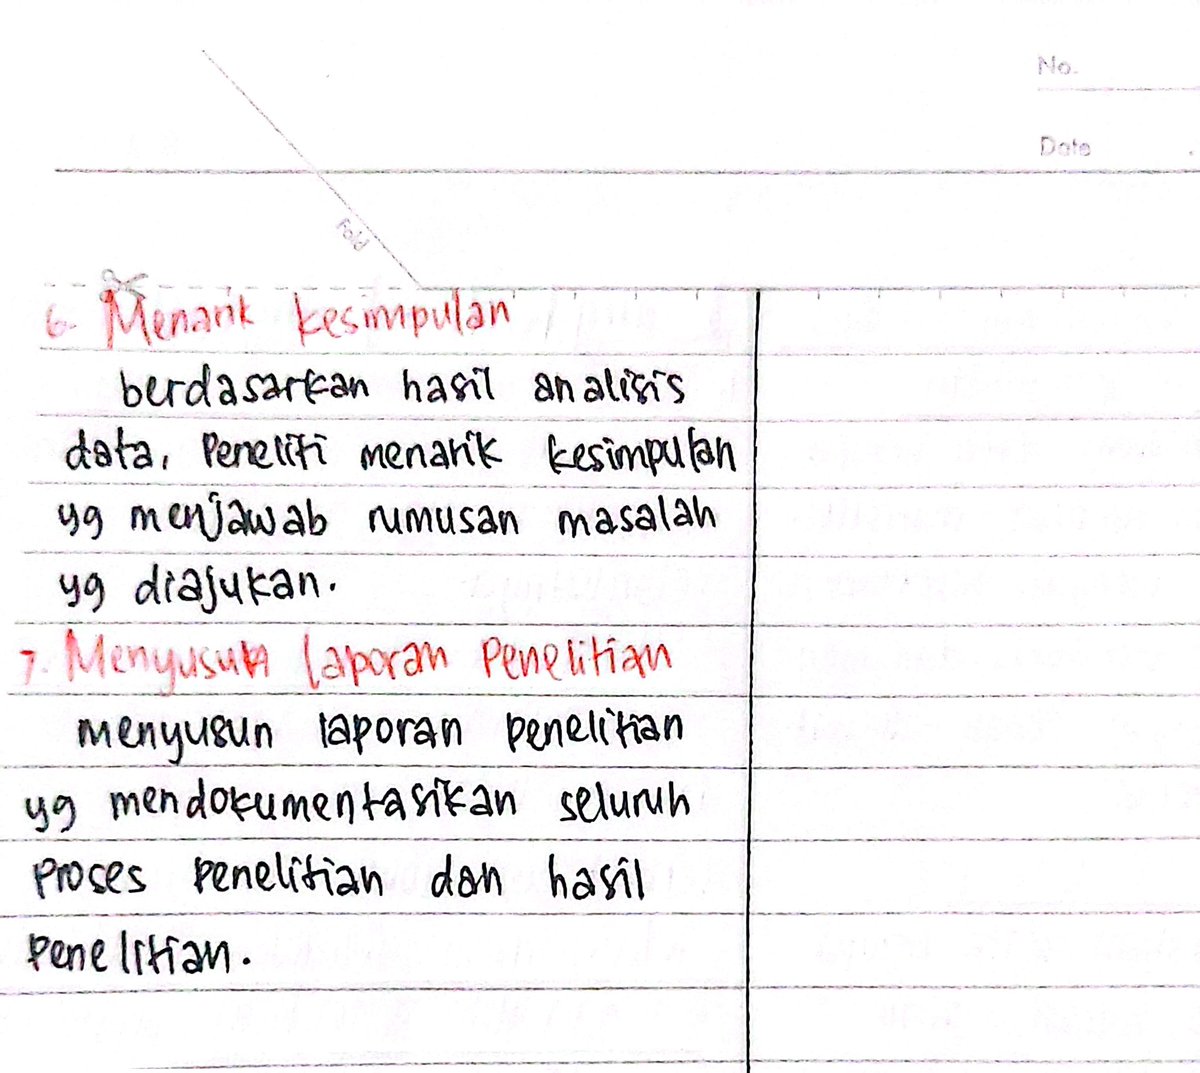 No.
Date
Fold
6. Menarik kesimpulan
berdasarkan hasil analisis
data, Peneliti menarik kesimpulan
yg menjawab rumusan masalah
yg diajukan.
7. Menyusun laporan Penelitian
menyusun laporan penelitian
yg mendokumentasikan seluruh
Proses Penelitian dan hasil
Penelitian.